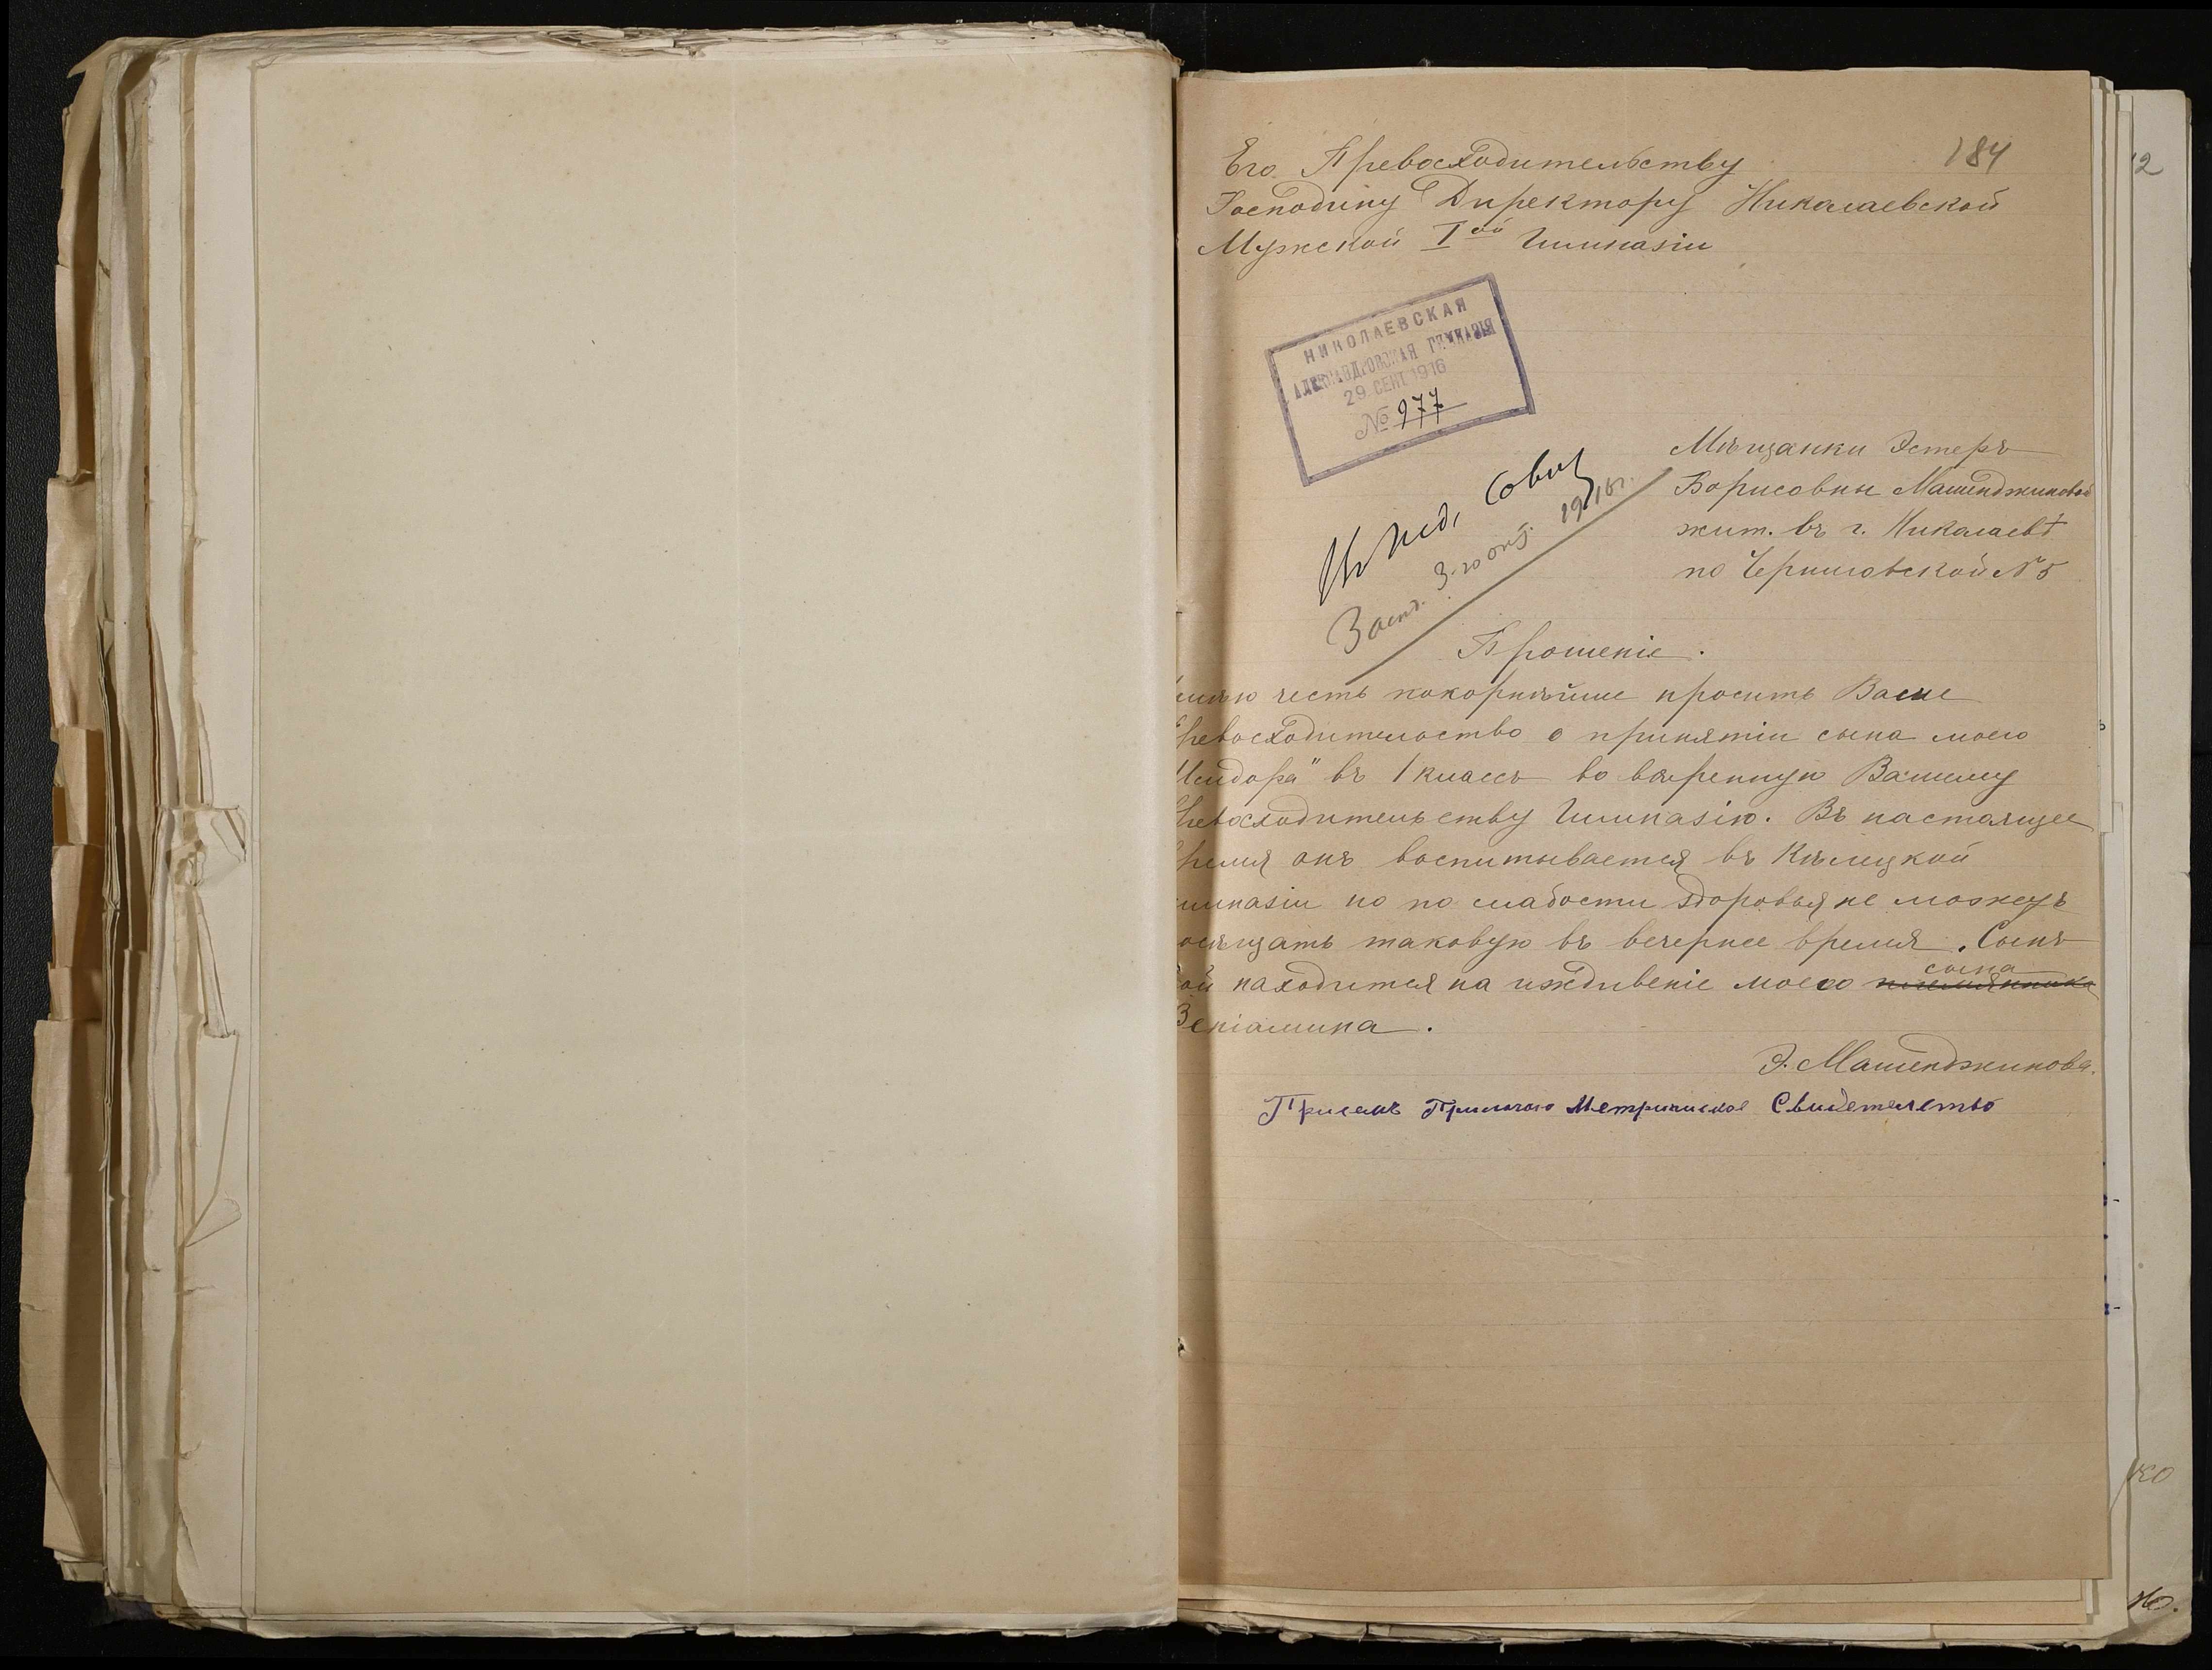 Его Превосходительству
184
Господину Директору Николаевской
Мужской I ой Гимназіи
НИКОЛАЕВСКАЯ
АЛЕКСАНДРОВСКАЯ ГИМНАЗІЯ
29 СЕНТ 1916
№ 977
Въ Пед. Совѣт
Засѣд. 3-го окт. 1916 г.
Мѣщанки Эстеръ
Борисовны Машенджиновой
жит. въ г. Николаевѣ
по Черниговской № 5
Прошеніе.
имѣю честь покорнѣйше просить Ваше
Превосходительство о принятіи сына моего
Исидора" въ 1 классъ во ввѣренную Вашему
Превосходительству Гимназію. Въ настоящее
время онъ воспитывается въ Кѣлецкой
гимназіи но по слабости здоровья не можетъ
посѣщать таковую въ вечернее время. Сынъ
мой находится на иждивеніе моего племянника сына
Веніамина.
Э. Машенджинова.
При семъ Прилагаю Метрическое Свидетелство
12